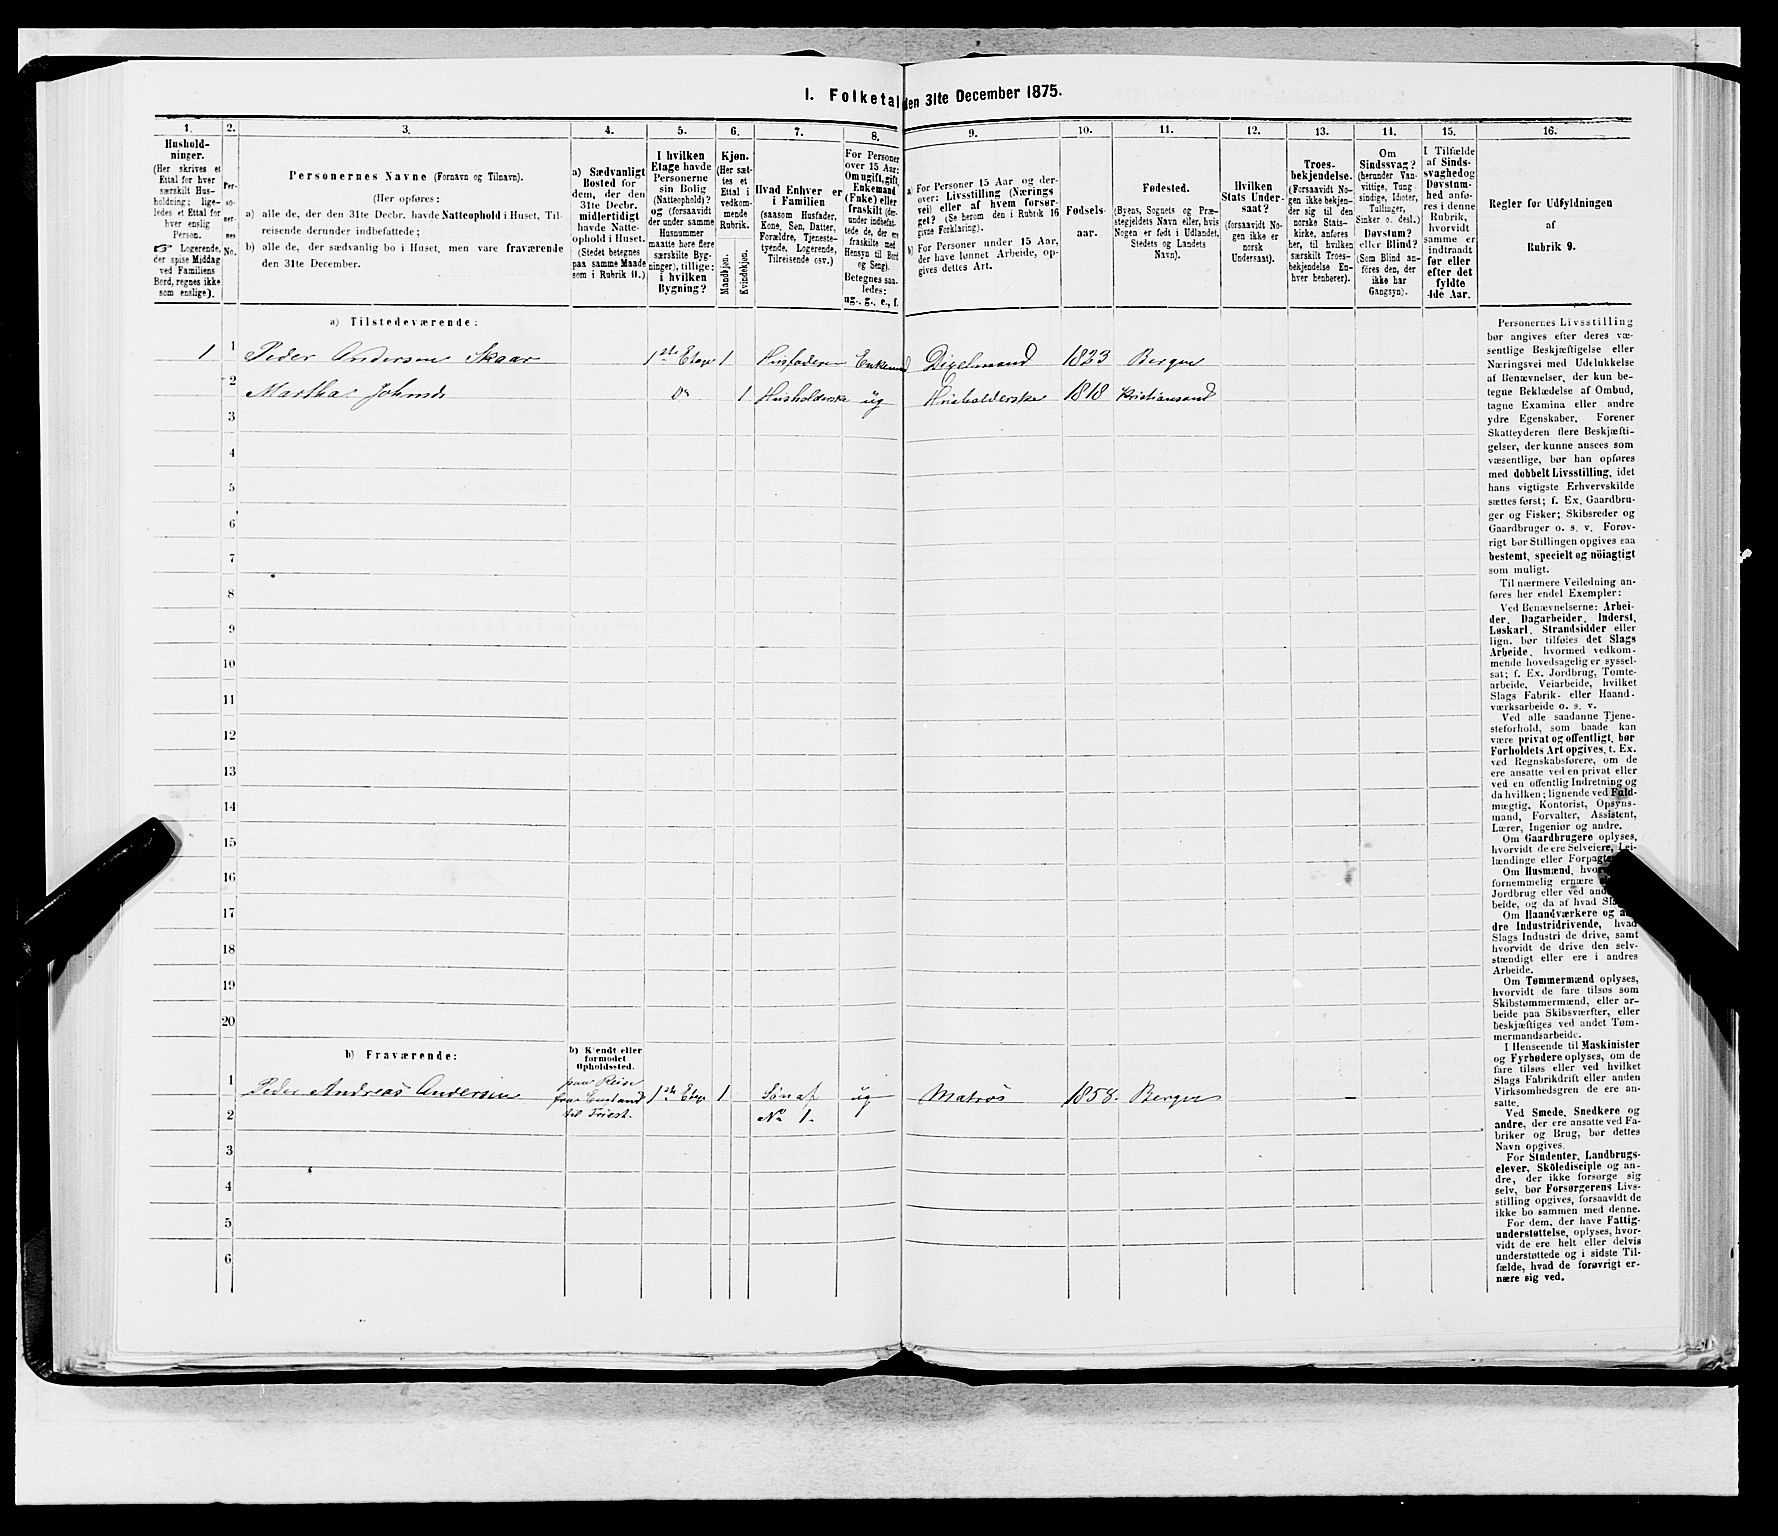 I. Folketal den 31te December 1875.
1. 2. 3. 4. 5. 6. 7. 8. 9. 10. 11. 12. 13. 14. 15. 16.
Hushold-
ninger.
(Her skrives et
Ettal for hver
særskilt Hus-
holdning; lige-
ledes et Ettal for
hver enslig
Person.
☞ Logerende,
der spise Middag
ved Familiens
Bord, regnes ikke
som enslige).
Per-
so-
ner-
nes
No.
Personernes Navne (Fornavn og Tilnavn).
(Her opføres:
a) alle de, der den 31te Decbr. havde Natteophold i Huset, Til-
reisende derunder indbefattede;
b) alle de, der sædvanlig bo i Huset, men vare fraværende
den 31te December.
a) Sædvanligt
Bosted for
dem, der den
31te Decbr.
midlertidigt
havde Natte-
ophold i Huset.
(Stedet betegnes
paa samme Maade
som i Rubrik 11.)
I hvilken
Etage havde
Personerne
sin Bolig
(Natteophold)?
og (forsaavidt
der under samme
Husnummer
maatte høre flere
særskilte Byg-
ninger), tillige:
i hvilken
Bygning?
Kjøn.
(Her sæt-
tes et
Ettal i
vedkom-
mende
Rubrik.
Mandkjøn.
Kvindekjøn.
Hvad Enhver er
i Familien
(saasom Husfader,
Kone, Søn, Datter,
Forældre, Tjeneste-
tyende, Logerende,
Tilreisende osv.)
For Personer
over 15 Aar:
Om ugift, gift,
Enkemand
(Enke) eller
fraskilt (der-
under indbefat-
tede de, der ere
fraskilte med
Hensyn til Bord
og Seng).
Betegnes saa-
ledes:
ug., g., e., f.
a) For Personer 15 Aar og der-
over: Livsstilling (Nærings
vei) eller af hvem forsør-
get? (Se herom den i Rubrik 16
givne Forklaring).
b) For Personer under 15 Aar,
der have lønnet Arbeide, op-
gives dettes Art.
Fødsels-
aar.
Fødested.
(Byens, Sognets og Præ-
stegjeldets Navn eller, hvis
Nogen er født i Udlandet,
Stedets og Landets
Navn).
Hvilken
Stats Under-
saat?
(forsaavidt No-
gen ikke er
norsk
Undersaat).
Troes-
bekjendelse.
(Forsaavidt No-
gen ikke bekjen-
der sig til den
norske Stats-
kirke, anføres
her, til hvilken
særskilt Troes-
bekjendelse En-
hver henhører).
Om
Sindssvag?
(herunder Van-
vittige, Tung-
sindige, Idioter,
Tullinger,
Sinker o. desl.)
Døvstum?
eller Blind?
(Som Blind an-
føres den, der
ikke har
Gangsyn).
I Tilfælde
af Sinds-
svaghed og
Døvstum-
hed anfø-
res i denne
Rubrik,
hvorvidt
samme er
indtraadt
før eller
efter det
fyldte
4de Aar.
Regler før Udfyldningen
af
Rubrik 9.
a) Tilstedeværende:
1 1 Peder Andersen Skaar 1ste Etage 1 Husfaderen Enkemand Dixelmand 1823 Bergen
2 Martha Johnsd. Do 1 Husholderske ug Husholderske 1818 Kristiansand
3
4
5
6
7
8
9
10
11
12
13
14
15
16
17
18
19
20
b) Fraværende:
b) Kjendt eller
formodet
Opholdssted.
1 Peder Andreas Andersen paa Reise fra England til Triest. 1ste Etage 1 Søn af No 1. ug Matros 1858. Bergen
2
3
4
5
6
Personernes Livsstilling
bør angives efter deres væ-
sentlige Beskjæftigelse eller
Næringsvei med Udelukkelse
af Benævnelser, der kun be-
tegne Beklædelse af Ombud,
tagne Examina eller andre
ydre Egenskaber. Forener
Skatteyderen flere Beskjæfti-
gelser, der kunne ansees som
væsentlige, bør han opføres
med dobbelt Livsstilling, idet
hans vigtigste Erhvervskilde
sættes først; f. Ex. Gaardbru-
ger og Fisker; Skibsreder og
Gaardbruger o. s. v. Forøv-
rigt bør Stillingen opgives saa
bestemt, specielt og nöiagtigt
som muligt.
Til nærmere Veiledning an-
føres her endel Exempler:
Ved Benævnelserne: Arbei-
der, Dagarbeider, Inderst,
Løskarl, Strandsidder eller
lign. bør tilføies det Slags
Arbeide, hvormed vedkom-
mende hovedsagelig er syssel-
sat; f. Ex. Jordbrug, Tomte-
arbeide, Veiarbeide, hvilket
Slags Fabrik- eller Haand-
værksarbeide o. s. v.
Ved alle saadanne Tjene-
steforhold, som baade kan
være privat og offentligt, bør
Forholdets Art opgives, t. Ex.
ved Regnskabsførere, om de
ere ansatte ved en privat eller
ved en offentlig Indretning og
da hvilken; lignende ved Fuld-
mægtig, Kontorist, Opsyns-
mand, Forvalter, Assistent,
Lærer, Ingeniør og andre.
Om Gaardbrugere oplyses,
hvorvidt de ere Selveiere, Lei-
lændinge eller
Om Husmænd,
fornemmelig ernære
Jordbrug eller ved
beide, og da af hvad
Om Haandværkere og an-
dre Industridrivende, hvad
Slags Industri de drive, samt
hvorvidt de drive den selv-
stændigt eller ere i andres
Arbeide.
Om Tømmermænd oplyses,
hvorvidt de fare tilsøs som
Skibstømmermænd, eller ar-
beide paa Skibsværfter, eller
beskjæftiges ved andet Tøm-
mermandsarbeide.
I Henseende til Maskinister
og Fyrbødere oplyses, om de
fare tilsøs eller ved hvilket
Slags Fabrikdrift eller anden
Virksomhedsgren de ere an-
satte.
Ved Smede, Snedkere og
andre, der ere ansatte ved Fa-
briker og Brug, bør dettes
Navn opgives.
For Studenter, Landbrugs-
elever, Skoledisciple og an-
dre, der ikke forsørge sig
selv, bør Forsørgerens Livs-
stilling opgives, forsaavidt de
ikke bo sammen med denne.
For dem, der have Fattig-
understøttelse, oplyses, hvor-
vidt de ere helt eller delvis
understøttede og i sidste Til-
fælde, hvad de forøvrigt er-
nære sig ved.